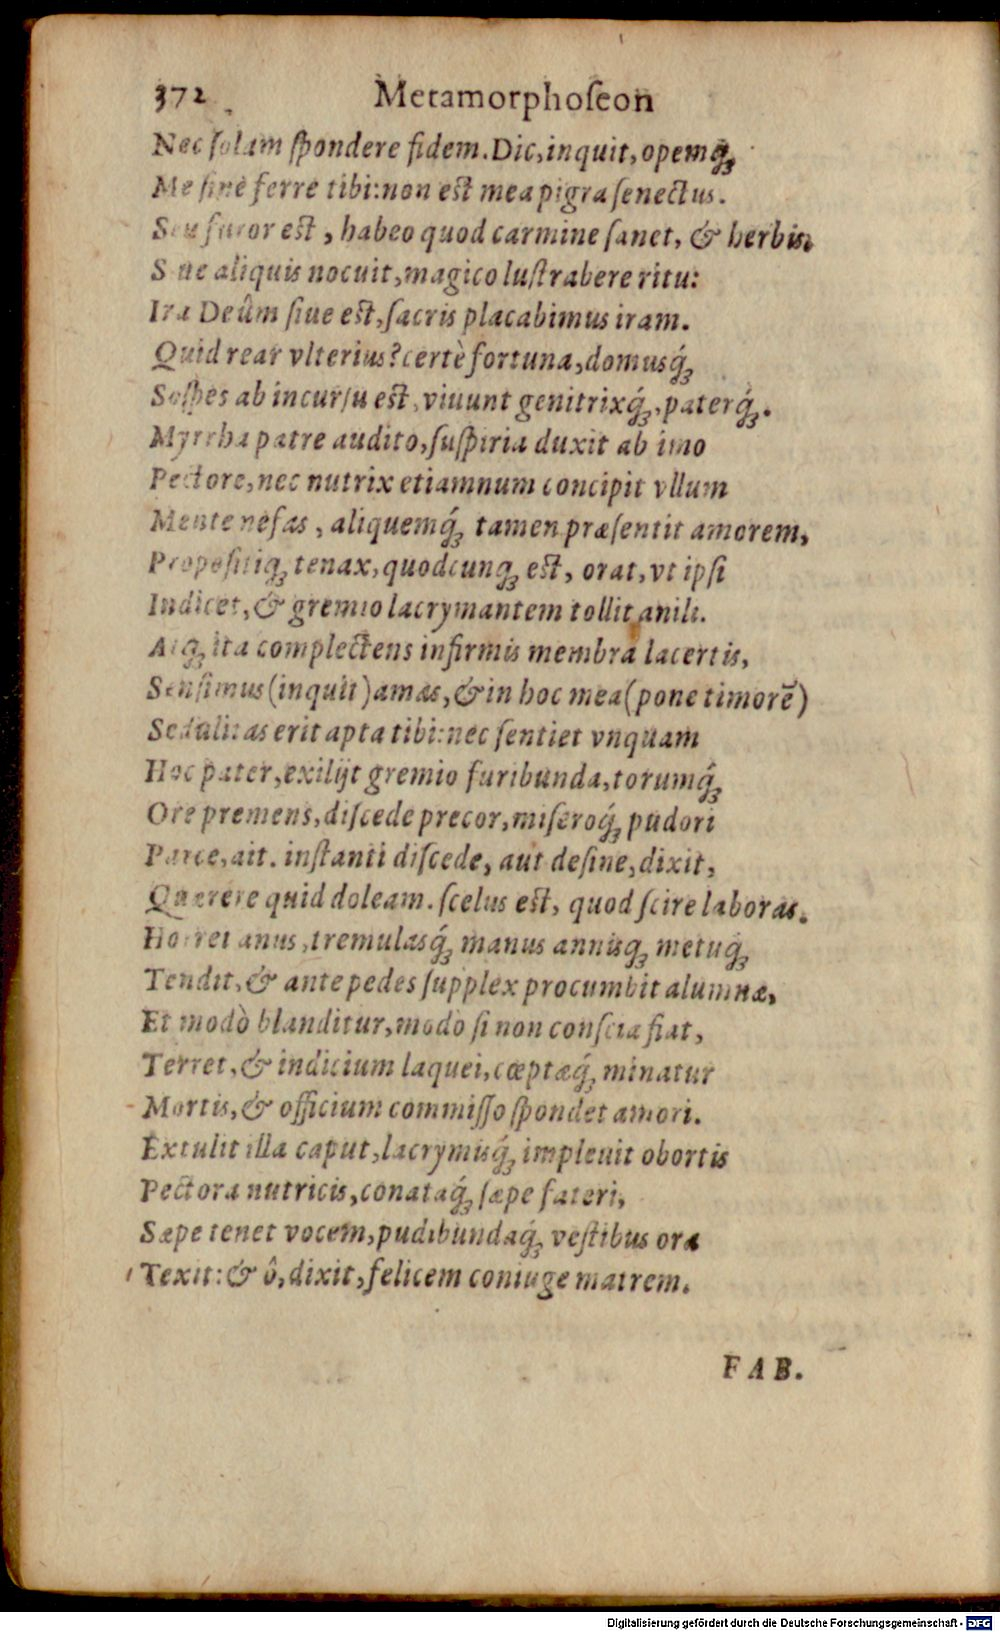 372 Metamorphoſeon
Nec ſolam ſpondere fidem. Dic, inquit, opemq́ꝫ
Me ſine ferre tibi: non est mea pigra ſenectus.
Seu furor est, habeo quod carmine ſanet, & herbis.
Siue aliquis nocuit, magico luſtrabere ritu:
Ira Deûm ſiue est, ſacris placabimus iram.
Quid rear vlterius? certè fortuna, domusq́ꝫ
Soſpes ab incurſu est, viuunt genitrixq́ꝫ, paterq́ꝫ.
Myrrha patre audito, ſuſpiria duxit ab imo
Pectore, nec nutrix etiamnum concipit vllum
Mente nefas, aliquemq́ꝫ tamen præſentit amorem,
Propoſitiqꝫ tenax, quodcunqꝫ est, orat, vt ipſi
Indicet, & gremio lacrymantem tollit anili.
Atqꝫ ita complectens infirmis membra lacertis,
Senſimus (inquit) amas, & in hoc mea (pone timorē)
Sedulitas erit apta tibi: nec ſentiet vnquam
Hoc pater, exilijt gremio furibunda, torumq́ꝫ
Ore premens, diſcede precor, miſeroq́ꝫ pudori
Parce, ait. inſtanti diſcede, aut deſine, dixit,
Quærere quid doleam. ſcelus est, quod ſcire laboras.
Horret anus, tremulasq́ꝫ manus annisqꝫ metuq́ꝫ
Tendit, & ante pedes ſupplex procumbit alumnæ,
Et modò blanditur, modò ſi non conſcia fiat,
Terret, & indicium laquei, cœptæq́ꝫ minatur
Mortis, & officium commiſſo ſpondet amori.
Extulit illa caput, lacrymisq́ꝫ impleuit obortis
Pectora nutricis, conataq́ꝫ ſæpe fateri,
Sæpe tenet vocem, pudibundaq́ꝫ veſtibus ora
Texit: & ô, dixit, felicem coniuge matrem.
FAB.
Digitalisierung gefördert durch die Deutsche Forschungsgemeinschaft - DFG